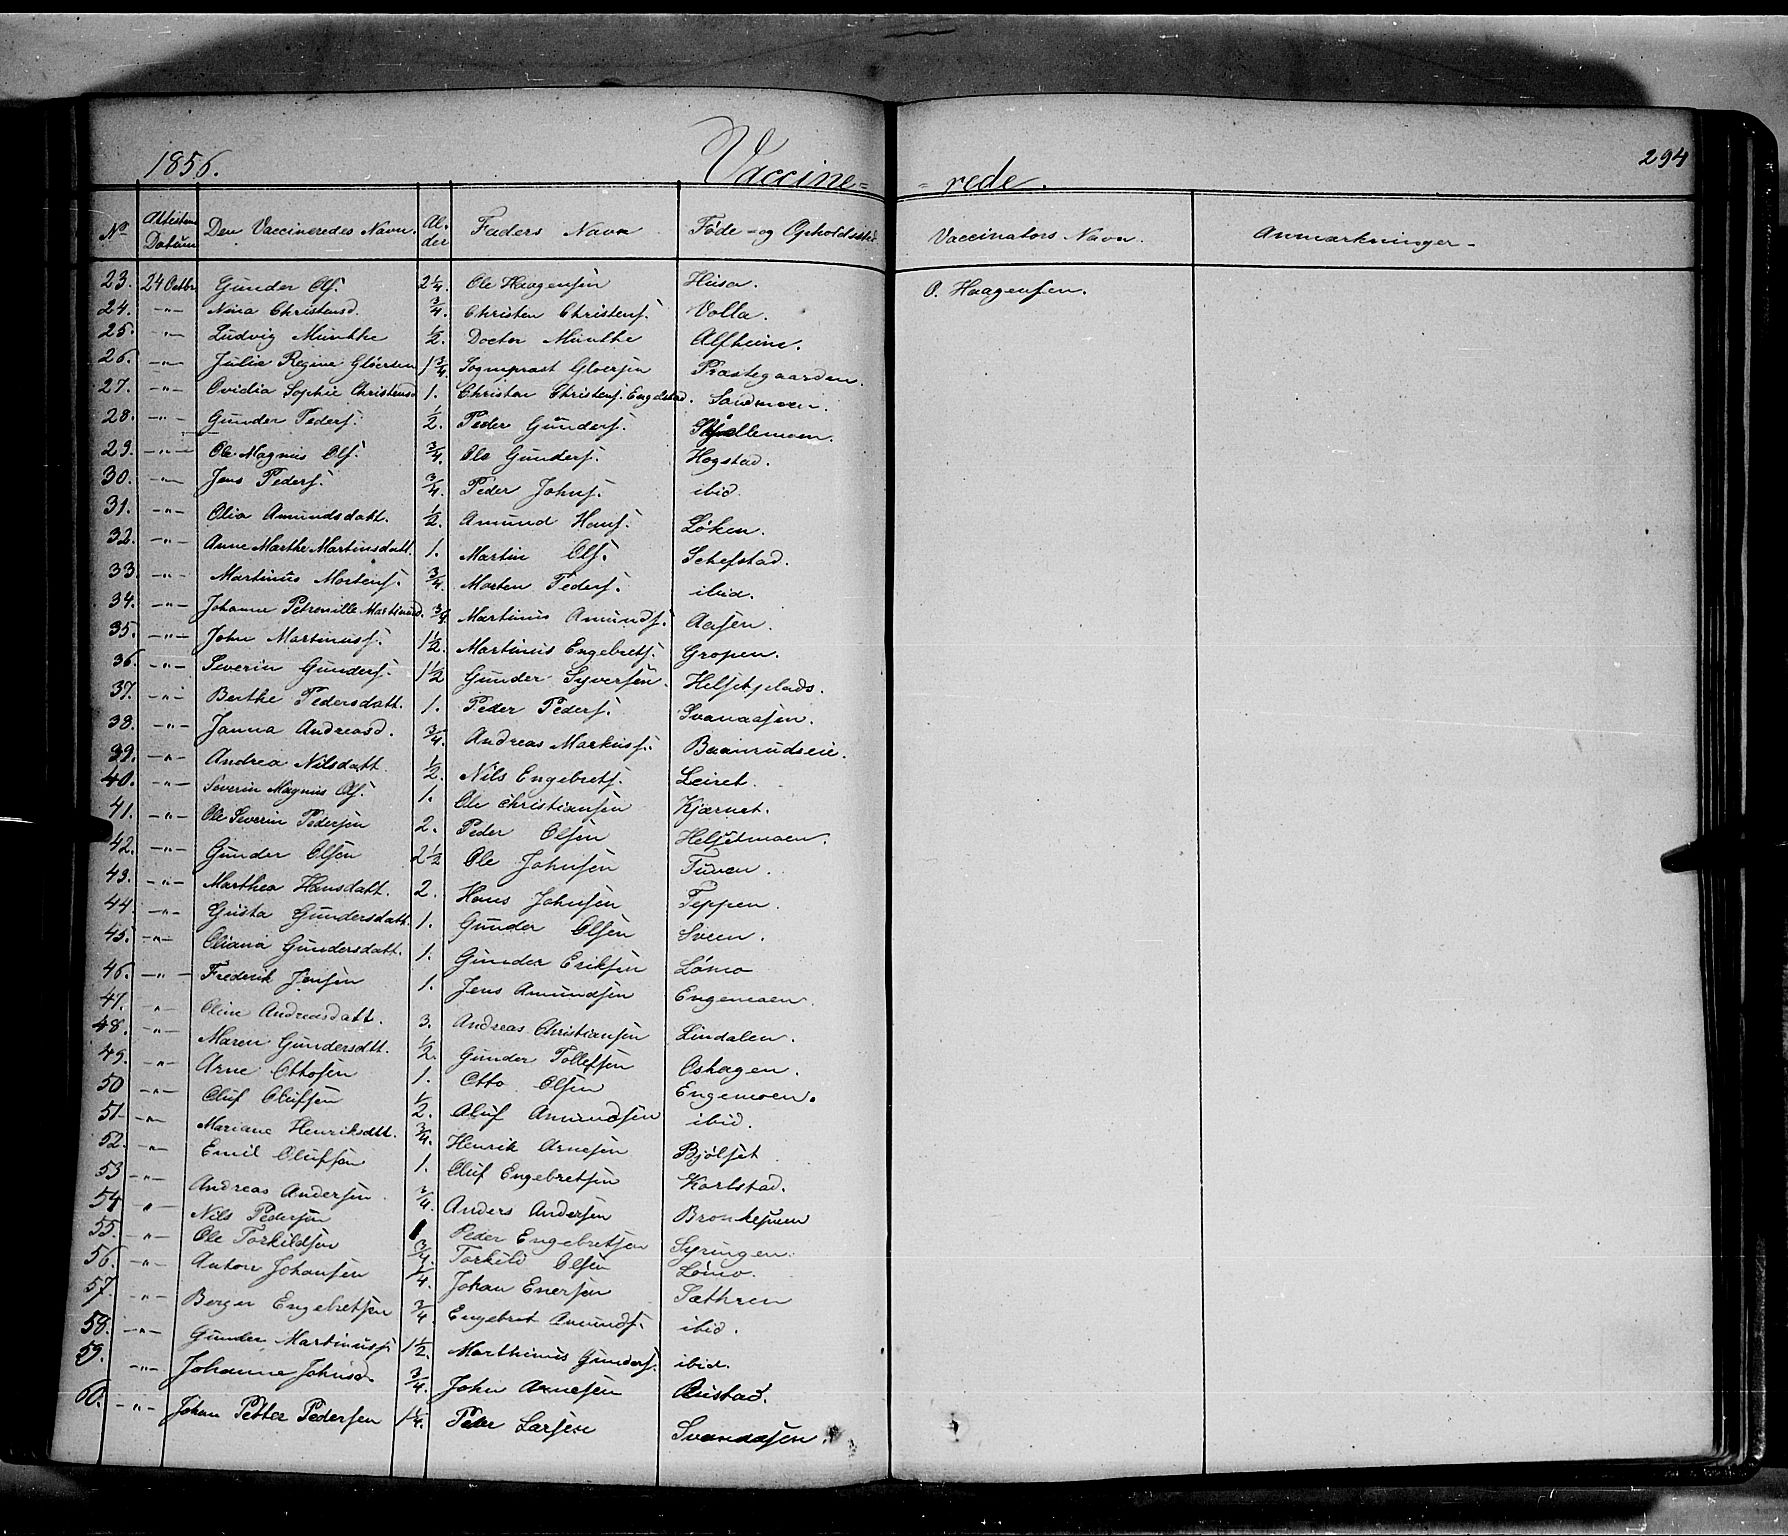 1856. Vaccine= =rede. 294
No Attestens Datum Den Vaccineredes Navn. Alder Faders Navn Føde- og Opholdssted Vaccinators Navn. Anmærkninger-
23. 24 Octbr Gunder Ols. 2 1/4. Ole Haagensen Husa. O. Haagensen.
24. -"- Nina Christensd. 3/4. Christen Christens. Volla.
25. -"- Ludvig Munthe 1/2. Doctor Munthe Alfheim.
26. -"- Julie Regine Gløersen 1 3/4. Sognepræst Gløersen Præstegaarden.
27. -"- Ovidia Sophie Christensd 1. Christen Christens. Engelstad. Sandmoen.
28. -"- Gunder Peders. 1/2. Peder Gunders.
29. -"- Ole Magnus Ols. 3/4. Ole Gunders. Hogstad.
30. -"- Jens Peders. 3/4. Peder Johns. ibid.
31. -"- Olia Amundsdatt. 1/2. Amund Hans. Løken.
32. -"- Anne Marthe Martinsdatt. 1. Martin Ols. Schefstad.
33. -"- Martinus Mortens. 3/4. Morten Peders. ibid.
34. -"- Johanne Petronille Martinusd. 3/4. Martinus Amunds. Aasen.
35. -"- John Martinuss. 1 1/2. Martinus Engebrets. Gropen.
36. -"- Severin Gunders. 1 1/2 Gunder Syversen. Helsetplads.
37. -"- Berthe Pedersdatt. 1. Peder Peders. Svanaasen.
38. -"- Janna Andreasd. 3/4. Andreas Markuss. Baanrudseie.
39. -"- Andrea Nilsdatt. 1/2. Nils Engebrets. Leiret.
40. -"- Severin Magnus Ols. 1. Ole Christiansen Kjærnet.
41. -"- Ole Severin Pedersen 2. Peder Olsen Helsetmoen.
42. -"- Gunder Olsen 2 1/2 Ole Johnsen Tuven.
43. -"- Marthea Hansdatt. 2. Hans Johnsen Teppen.
44. -"- Gusta Gundersdatt. 1. Gunder Olsen Sveen.
45. -"- Oliana Gundersdatt. 1. Gunder Eriksen Lømo
46. -"- Frederik Jensen 1. Jens Amundsen Engemoen.
47. " Oline Andreasdatt. 3. Andreas Christiansen Lindalen.
48. -"- Maren Gundersdtt. 1/2. Gunder Tollefsen Oshagen.
49. -"- Arne Ottosen 1. Otto Olsen Engemoen.
50 -"- Oluf Olufsen 1/2. Oluf Amundsen ibid.
51- -"- Mariane Henriksdtt. 3/4. Henrik Arnesen Bjølset
52. -"- Emil Olufsen 1. Oluf Engebretsen Karlstad.
53 -"- Andreas Andersen 3/4. Anders Andersen
54 -"- Nils Pedersen 1 Peder Engebretsen Syringen.
55. -"- Ole Torkildsen 3/4. Torkild Olsen Lømo.
56. -"- Anton Johansen 1/4. Johan Enersen Sæthren
57. -"- Berger Engebretsen 3/4 Engebret Amunds. ibid.
58. -"- Gunder Martinuss. 1 1/2. Marthinus Gunders. ibid.
59. -"- Johanne Johnsd. 3/4. John Arnesen Austad.
60. -"- Johan Petter Pedersen 1 1/4. Peder Larsen Svanaasen.